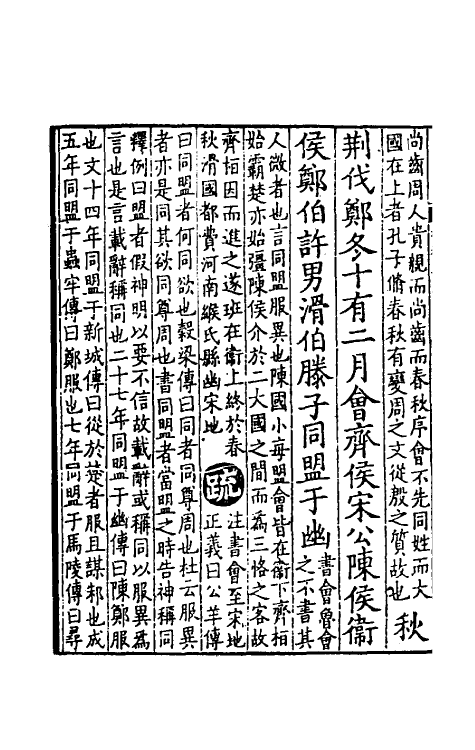 尚齒周人貴親而尚齒而春秋序會不先同姓而大
國在上者孔子脩春秋有變周之文從殷之質故也
秋
荆伐鄭冬十有二月會齊侯宋公陳侯衞
侯鄭伯許男滑伯滕子同盟于幽
書會魯會
之不書其
人微者也言同盟服異也陳國小每盟會皆在衞下齊桓
始霸楚亦始彊陳侯介於二大國之間而爲三恪之客故
齊桓因而進之遂班在衞上終於春
秋滑國都費河南緱氏縣幽宋地
疏
注書會至宋地
正義曰公羊傳
曰同盟者何同欲也穀梁傳曰同者何同尊周也杜云服異
者亦是同其欲同尊周也書同盟者當盟之時告神稱同
釋例曰盟者假神明以要不信故載辭或稱同以服異爲
言也是言載辭稱同也二十七年同盟于幽傳曰陳鄭服
也文十四年同盟于新城傳曰從於楚者服且謀邾也成
五年同盟于蟲牢傳曰鄭服也七年同盟于馬陵傳曰尋